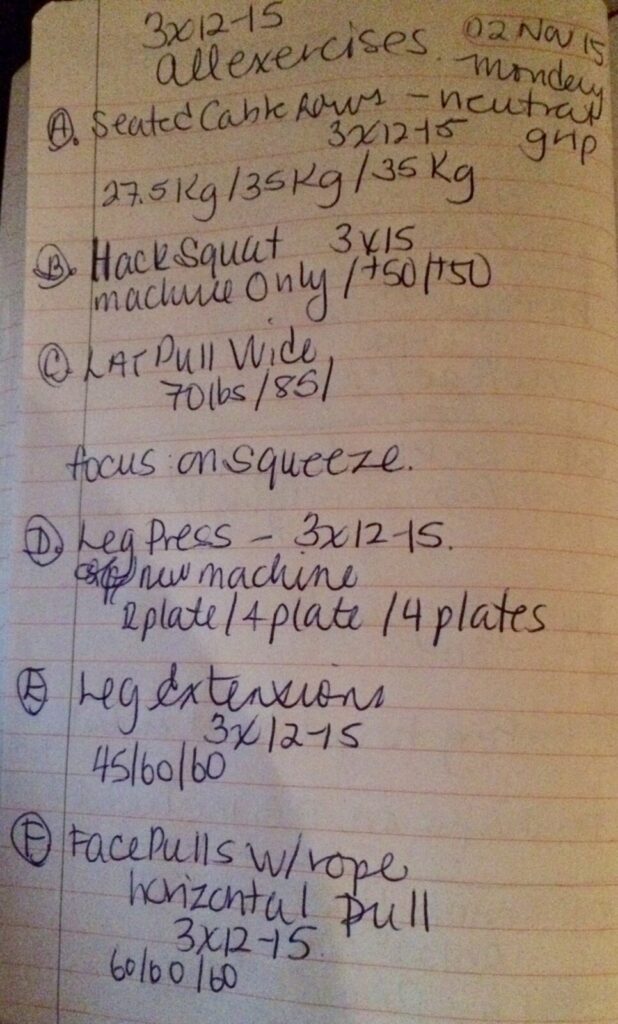 3x12-15
All exercises. 02 Nov 15
- Monday
A. Seated Cable Rows - neutral grip
3x12-15
27.5Kg/35Kg/35Kg
B. Hack Squat 3x15
machine Only /+50/+50
C. LAT Pull Wide
70lbs/85/
focus on squeeze.
D. Leg Press - 3x12-15.
new machine
2plate/4plate/4plates
E Leg Extensions
3x12-15
45/60/60
F Face Pulls w/rope
horizontal pull
3x12-15
60/60/60